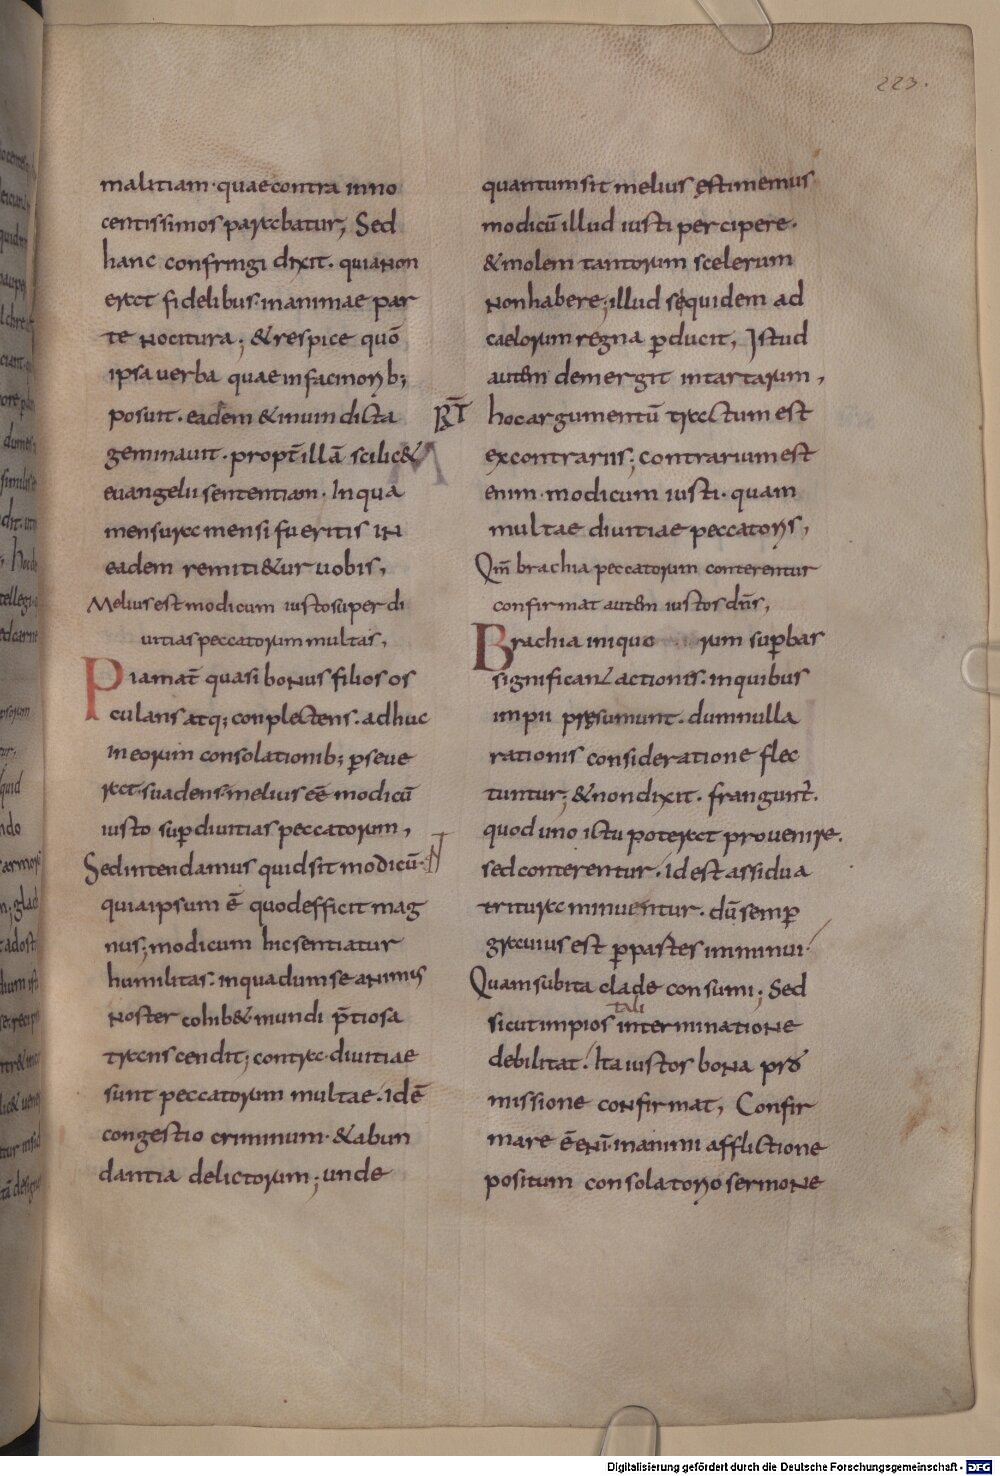 223.
malitiam · quae contra inno
centissimos parabatur; Sed
hanc confringi dixit. quia non
erat fidelibus in animae par
te nocitura; & respice quō
ipsa uerba quae in facinorib;
posuit. eadem & in uindicta
geminauit. propt̄ illā scilic&
euangelii sententiam. In qua
mensura mensi fueritis in
eadem remiti&ur uobis,
Melius est modicum iusto super di
uitias peccatorum multas,
Pia mat̄ quasi bonus filios os
culans atq; conplectens. adhuc
in eorum consolationib; ꝑseue
rat. suadens. melius eē modicū
iusto suꝑ diuitias peccatorum,
Sed intendamus quid sit modicū.
quia ipsum ē quod efficit mag
nus; modicum hic sentiatur
humilitas. in qua dum se animus
noster cohib& mundi p̄tiosa
transcendit; contra diuitiae
sunt peccatorum multae. idē
congestio criminum. & abun
dantia delictorum; unde
quantum sit melius ęstimemus
modicū illud iusti percipere.
& molem tantorum scelerum
non habere; illud sequidem ad
caelorum regna ꝑducit, Istud
autem demergit in tartarum,
hoc argumentū tractum est
ex contrariis; contrarium est
enim. modicum iusti. quam
multae diuitiae peccatoris,
Qm̄ brachia peccatorum conterentur
confirmat autem iustos dn̄s,
Brachia iniquo rum suꝑbas
significant actionis. in quibus
impii pręsumunt. dum nulla
rationis consideratione flec
tuntur; & non dixit. frangunt̄.
quod uno ictu poterat prouenire.
sed conterentur. id est assidua
tritura minuentur. dū semꝑ
grauius est ꝑ partes imminui
Quam subita clade consumi; Sed
tali
sicut impios interminatione
debilitat. Ita iustos bona pro
missione confirmat, Confir
mare ē enī. in animi afflictione
positum consolatorio sermone
Digitalisierung gefördert durch die Deutsche Forschungsgemeinschaft - DFG